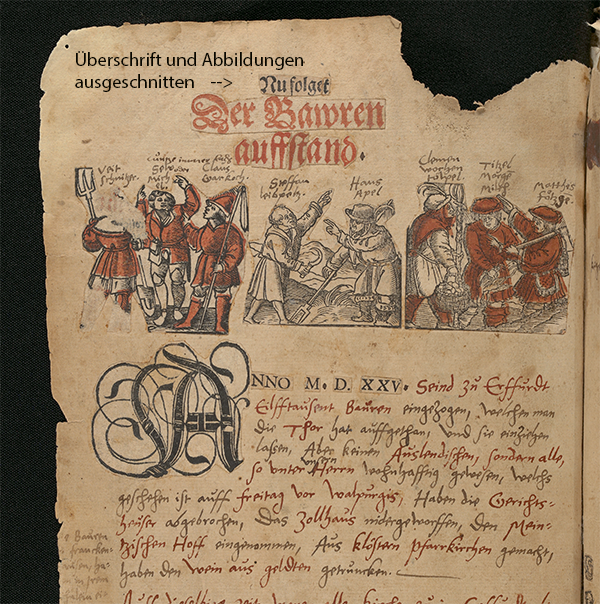 Überschrift und Abbildungen
ausgeschnitten -->
Nu folget
Der Bawren
auffstand.
Veit
Claus
Steffan
Hans
Apel
Clemen
Titzel
Merge
Milch
Matthes
ANNO M. D. XXV. Seind zu Erffurdt
Eilfftausent Bauren eingezogen, welchen man
die Thor hat auffgethan, vnd sie einziehen
lassen, Aber keinen Auslendischen, sondern alle,
so vnter vnsern Herrn wohnhafftig gewesen, welchs
geschehen ist auff freitag vor walpurgis, Haben die Gerichts-
heuser abgebrochen, Das Zollhaus nidergeworffen, den Mein-
tzischen Hoff eingenommen, Aus klöstern Pfarrkirchen gemacht,
haben den wein aus geldten getruncken.